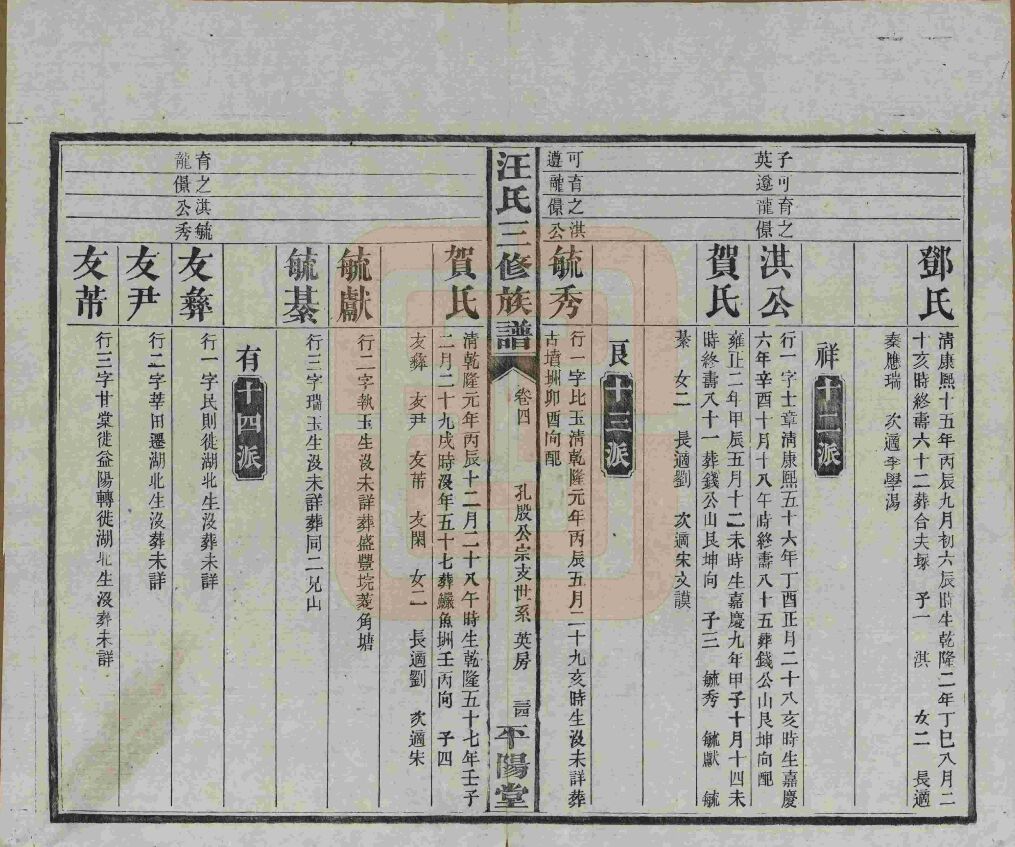 鄧氏
清康熙十五年丙辰九月初六辰時生乾隆二年丁巳八月二
十亥時終壽六十二葬合夫塚　子一　淇　女二　長適
秦應瑞　次適李學湯
祥十二派
子可育之
英遵龍儇
淇公
行一字士章清康熙五十六年丁酉正月二十八亥時生嘉慶
六年辛酉十月十八午時終壽八十五葬錢公山艮坤向配
賀氏
雍正二年甲辰五月十二未時生嘉慶九年甲子十月十四未
時終壽八十一葬錢公山艮坤向　子三　毓秀　毓獻　毓
綦　女二　長適劉　次適宋文謨
良十三派
可育之淇
遵龍儇公
毓秀
行一字比玉清乾隆元年丙辰五月二十九亥時生沒未詳葬
古墳洲卯酉向配
汪氏三修族譜
卷四
孔殷公宗支世系　英房
三四
平陽堂
賀氏
清乾隆元年丙辰十二月二十八午時生乾隆五十七年壬子
二月二十九戌時沒年五十七葬鱖魚洲壬丙向　子四
友彝　友尹　友芾　友閑　女二　長適劉　次適朱
毓獻
行二字執玉生沒未詳葬盛豐垸菱角塘
毓綦
行三字瑞玉生沒未詳葬同二兄山
有十四派
育之淇毓
龍儇公秀
友彝
行一字民則徙湖北生沒葬未詳
友尹
行二字莘田遷湖北生沒葬未詳
友芾
行三字甘棠徙益陽轉徙湖北生沒葬未詳